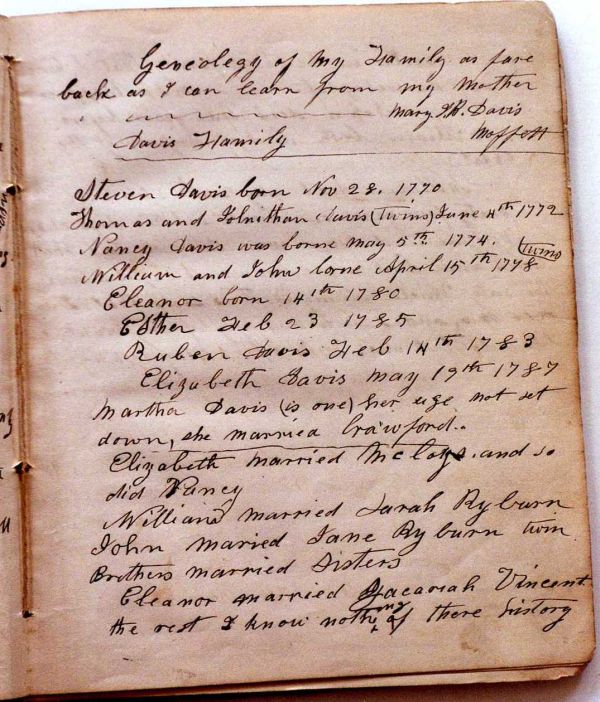 Geneology of my Family as fare
back as I can learn from my Mother
Mary Davis
Moffett
Davis Family
Steven Davis born Nov 28. 1770
Thomas and Johnithan Davis (Twins) June 4th 1772
Nancy Davis was borne may 5th 1774.
William and John borne April 15th 1778 (Twins)
Eleanor born 14th 1780
Esther Feb 23 1785
Ruben Davis Feb 14th 1783
Elizabeth Davis may 19th 1787
Martha Davis (is one) her age not set
down, she married Crawford.
Elizabeth married and so
did Nancy
William married Sarah Ryburn
John maried Jane Ryburn twin
Brothers married Sisters
Eleanor married Zacariah Vincent
the rest I know nothing of there history